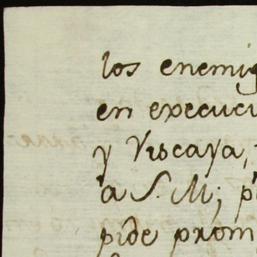 los enemig
en execuci
y Viscaya,
a S. M; p
pide prom